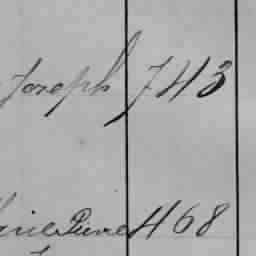 Joseph 743
Pierre 468